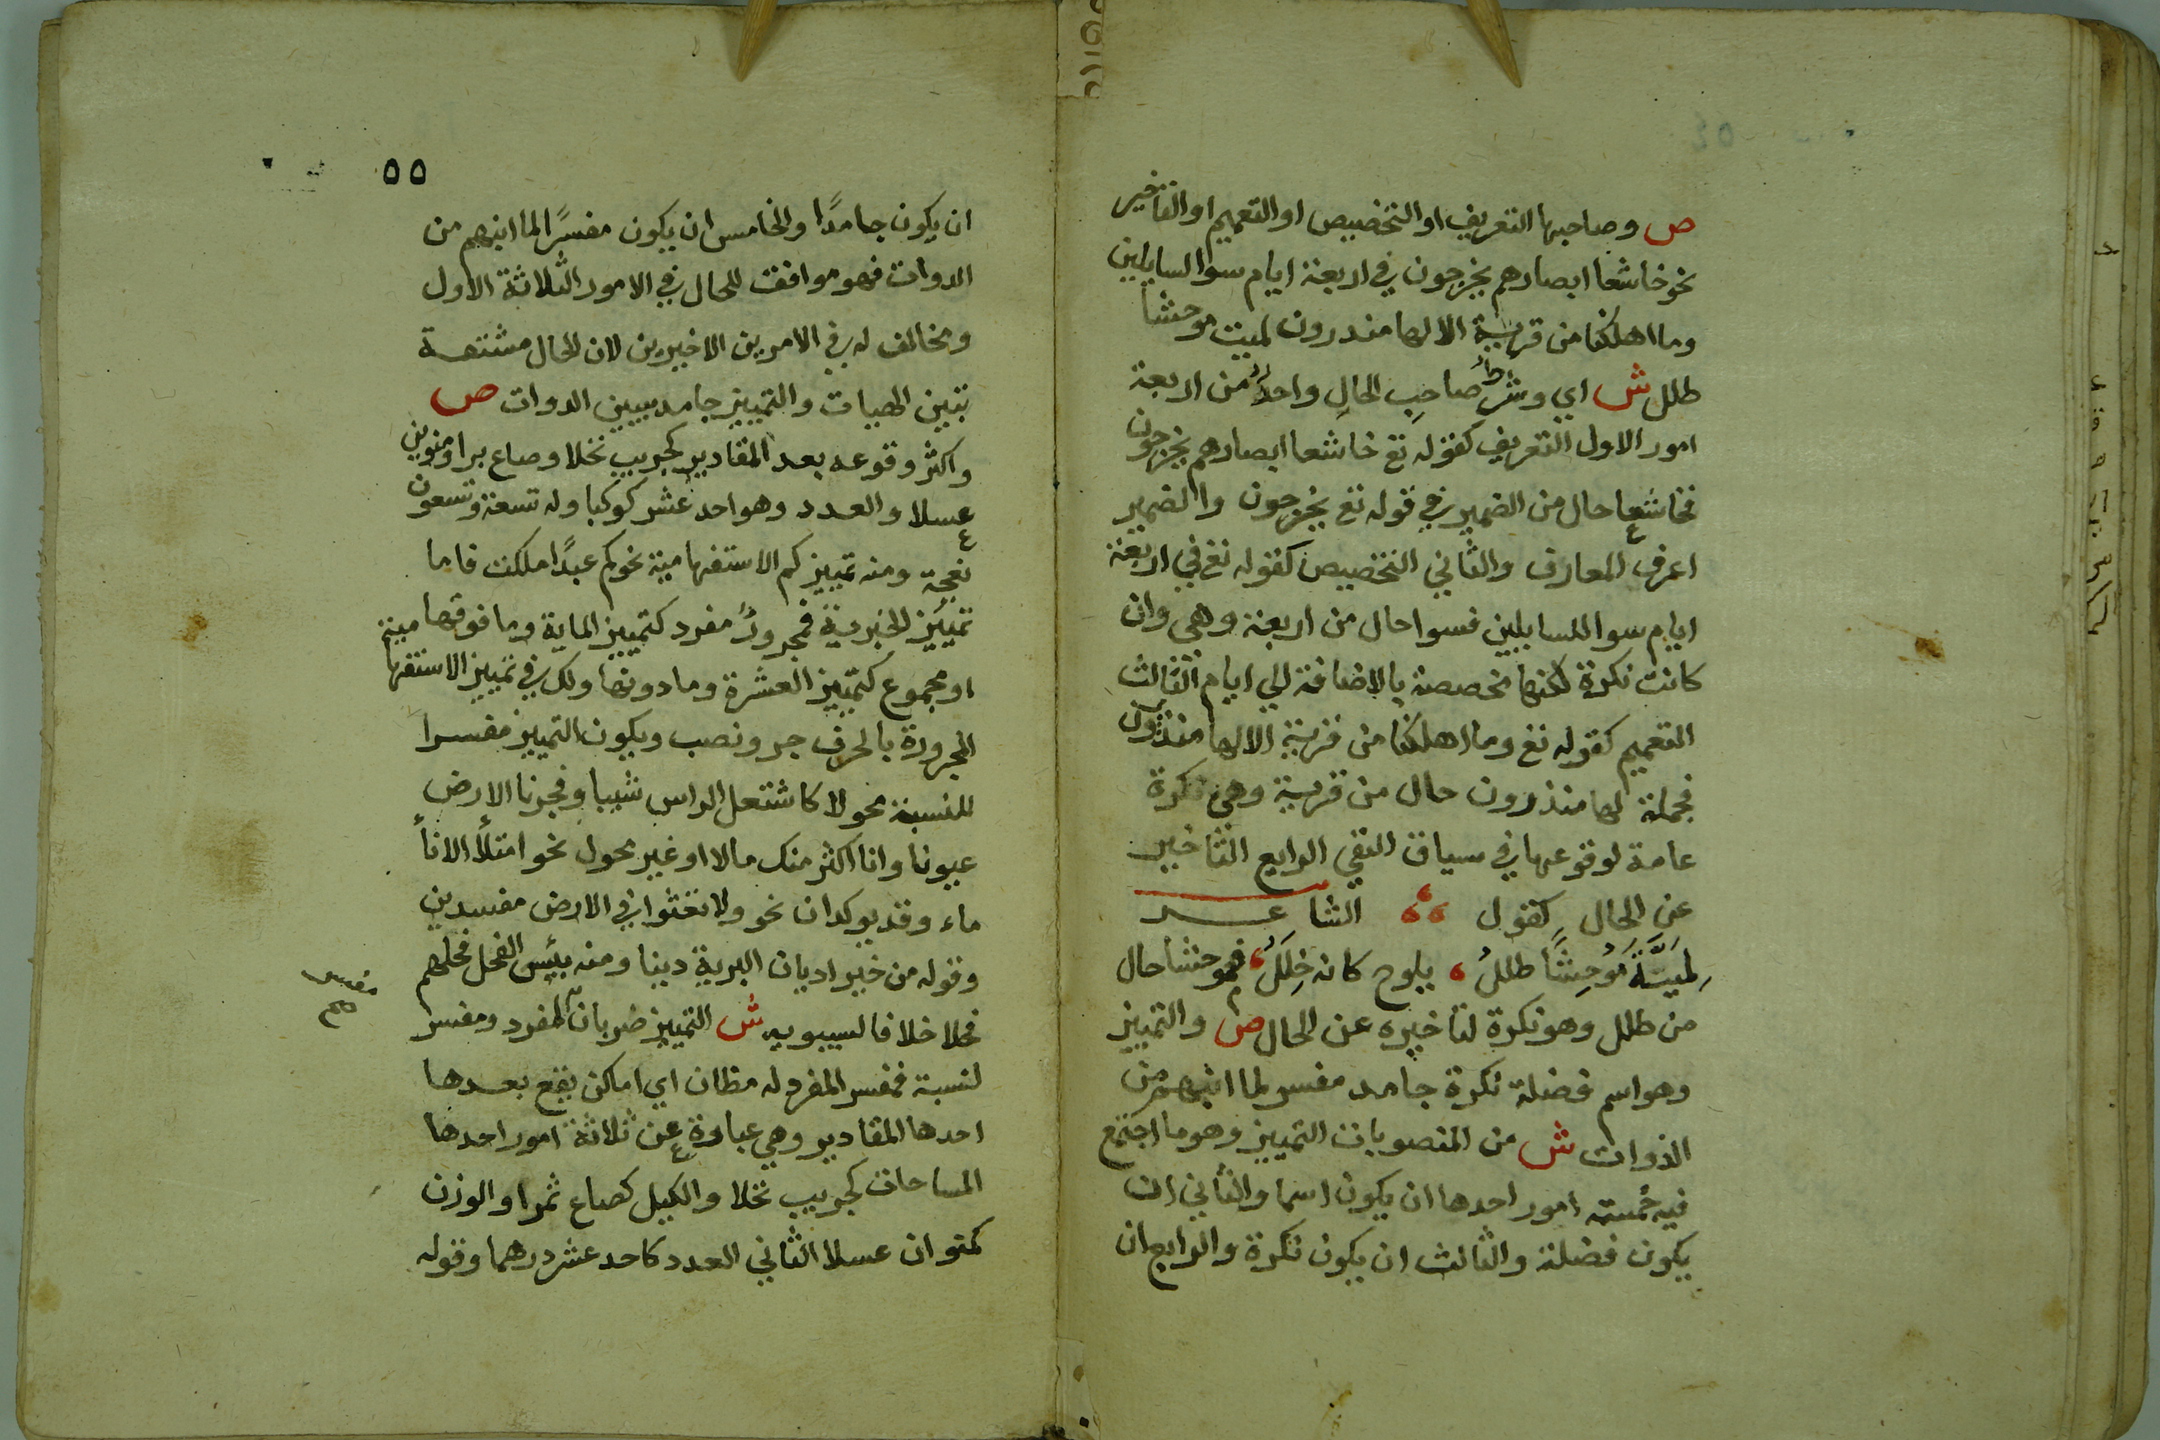 ص وصاحبها التعريف او التخصيص او التعميم او التاخير
نحو خاشعا ابصارهم يخرجون في اربعة ايام سوا للسايلين
وما اهلكنا من قرية الا لها منذرون لمية موحشا
طلل ش اي وشرط صاحبِ الحالِ واحدٌ من اربعة
امور الاول التعريف كقوله تع خاشعا ابصارهم يخرجون
فخاشعا حال من الضمير في قوله تع يخرجون والضمير
اعرف المعارف والثاني التخصيص كقوله تع في اربعة
ايام سوا للسايلين فسوا حال من اربعة وهي وان
كانت نكرة لكنها مخصصة بالاضافة الي ايام الثالث
التعميم كقوله تع وما اهلكنا من قرية الا لها منذرون
فجملة لها منذرون حال من قرية وهي نكرة
عامة لوقوعها في سياق النفي الرابع التاخير
عن الحال كقول الشاعر
لِمَيَّةَ مُوحِشًا طللُ ، يلوح كانه خِلَلُ ، فموحشا حال
من طلل وهو نكرة لتاخيره عن الحال ص والتمييز
وهو اسم فضلة نكرة جامد مفسر لما انبهم من
الذوات ش من المنصوبات التمييز وهو ما اجتمع
فيه خمسة امور احدها ان يكون اسما والثاني ان
يكون فضلة والثالث ان يكون نكرة والرابع ان
٥٥
ان يكون جامدًا والخامس ان يكون مفسرًا لما انبهم من
الدوات فهو موافق للحال في الامور الثلاثة الاول
ومخالف له في الامرين الاخيرين لان الحال مشتقة
تبين الهيات والتمييز جامد يبين الدوات ص
واكثر وقوعه بعد المقادير كجريب نخلا وصاع برا ومنوين
عسلا والعدد وهو احد عشر كوكبا وله تسعة وتسعون
نعجة ومنه تمييز كم الاستفهامية نحو كم عبدًا ملكت فاما
تمييز الخبرية فمجرورٌ مفرد كتمييز الماية وما فوقها
او مجموع كتمييز العشرة وما دونها ولك في تمييز الاستفهامية
المجرورة بالحرف جر ونصب ويكون التمييز مفسرا
للنسبة محولا كاشتعل الراس شيبا وفجرنا الارض
عيونا وانا اكثر منك مالا او غير محول نحو امتلأ الاناأ
ماء وقد يوكدان نحو ولا تعثوا في الارض مفسدين
وقوله من خير اديان البرية دينا ومنه بئس الفحل فحلهم
فحلا خلافا لسيبويه ش التمييز ضربان مفسر لمفرد ومفسر
لنسبة فمفسر المفرد له مظان اي اماكن يقع بعدها
احدها المقادير وهي عبارة عن ثلاثة امور احدها
المساحات كجريب نخلا والكيل كصاع ثمرا والوزن
كمنوان عسلا الثاني العدد كاحد عشر درهما وقوله